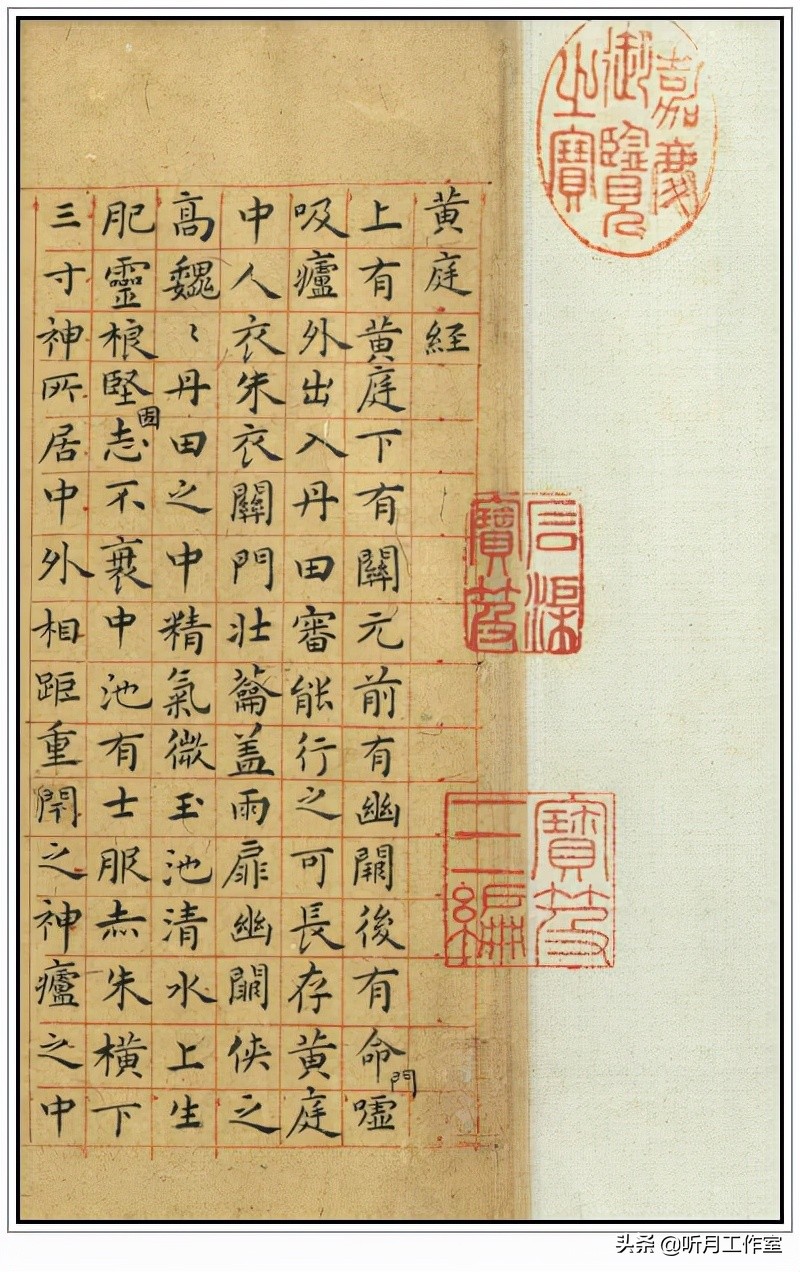 嘉慶
御覽
之寶
石渠
寶笈
寶笈
三編
黄庭経
上有黄庭下有關元前有幽闕後有命門嘘
吸廬外出入丹田審能行之可長存黄庭
中人衣朱衣關門壮籥盖兩扉幽闕侠之
高魏〻丹田之中精氣微玉池清水上生
肥靈根堅固志不衰中池有士服赤朱横下
三寸神所居中外相距重閇之神廬之中
头条 @听月工作室